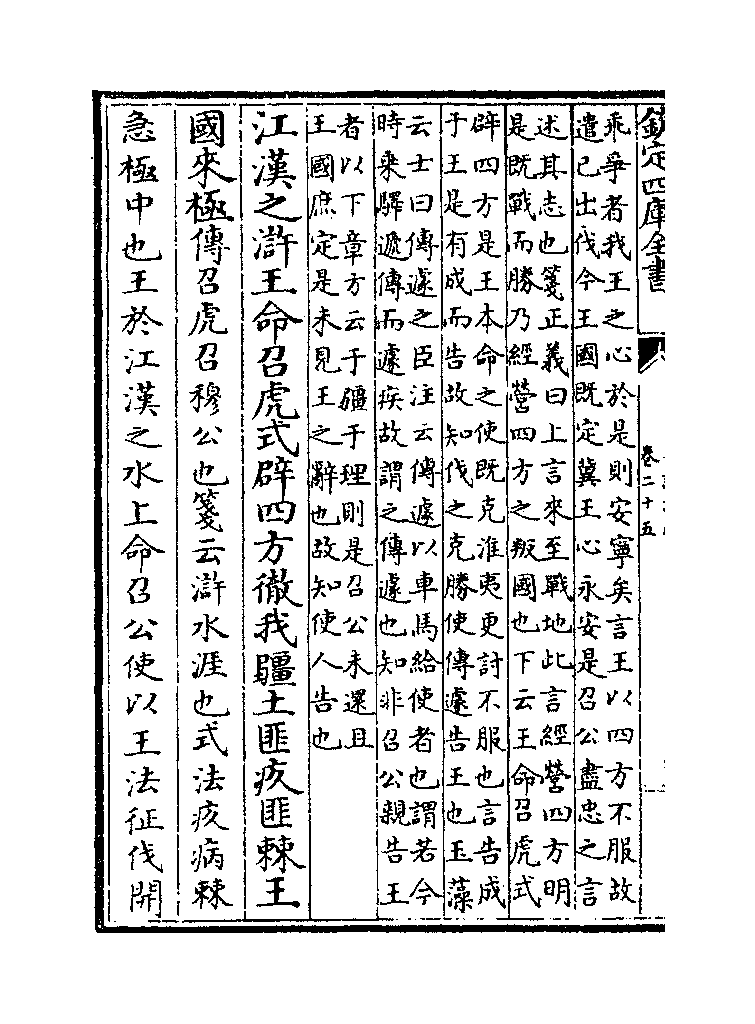 欽定四庫全書
卷二十五
乖爭者我王之心於是則安寧矣言王以四方不服故
遣已出伐今王國既定冀王心永安是召公盡忠之言
述其志也箋正義曰上言來至戰地此言經營四方明
是既戰而勝乃經營四方之叛國也下云王命召虎式
辟四方是王本命之使既克淮夷更討不服也言告成
于王是有成而告故知伐之克勝使傳遽告王也玉藻
云士曰傳遽之臣注云傳遽以車馬給使者也謂若今
時乘驛遞傳而遽疾故謂之傳遽也知非召公親告王
者以下章方云于疆于理則是召公未還且
王國庶定是未見王之辭也故知使人告也
江漢之滸王命召虎式辟四方徹我疆土匪疚匪棘王
國來極傳召虎召穆公也箋云滸水涯也式法疚病棘
急極中也王於江漢之水上命召公使以王法征伐開